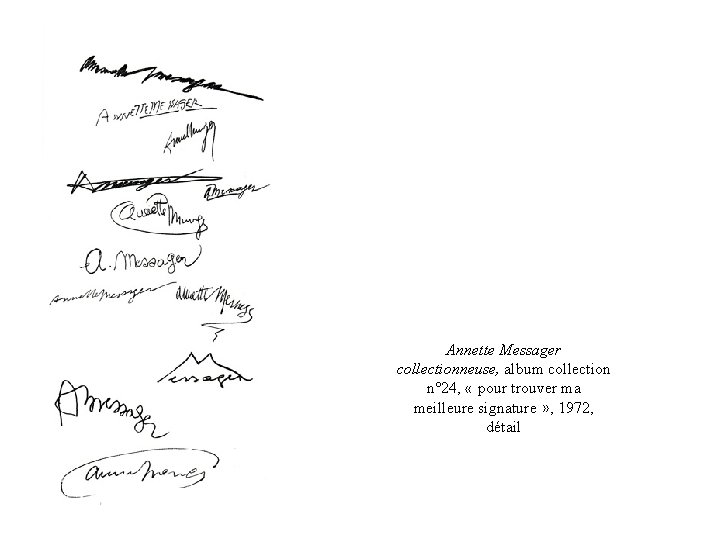 Annette Messager
ANNETTE MESSAGER
A Messager
A Messager
Annette
A. Messager
annette messager
Annette Messag
Messager
A Messager
Annette Messager
collectionneuse, album collection
n°24, « pour trouver ma
meilleure signature », 1972,
détail